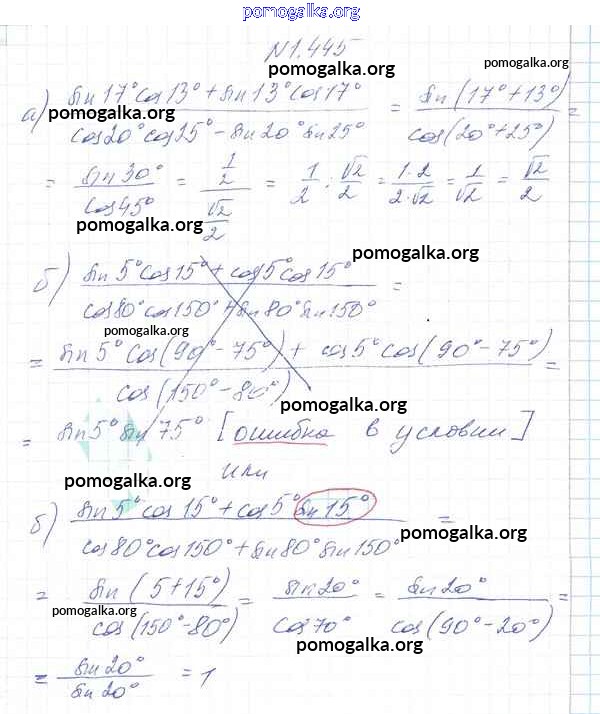 pomogalka.org
№1.445
pomogalka.org
а) sin17°cos13°+sin13°cos17° / cos20°cos25°-sin20°sin25° = sin(17°+13°) / cos(20°+25°) =
pomogalka.org
pomogalka.org
= sin30° / cos45° = 1/2 / √2/2 = 1/2 : √2/2 = 1·2 / 2·√2 = 1/√2 = √2/2
pomogalka.org
pomogalka.org
б) sin5°cos15°+cos5°cos15° / cos80°cos150°+sin80°sin150° =
pomogalka.org
= sin5°cos(90°-75°)+cos5°cos(90°-75°) / cos(150°-80°) =
pomogalka.org
= sin5°sin75° [ошибка в условии]
или
pomogalka.org
б) sin5°cos15°+cos5°sin15° / cos80°cos150°+sin80°sin150° =
pomogalka.org
= sin(5+15°) / cos(150°-80°) = sin20° / cos70° = sin20° / cos(90°-20°) =
pomogalka.org
pomogalka.org
= sin20° / sin20° = 1